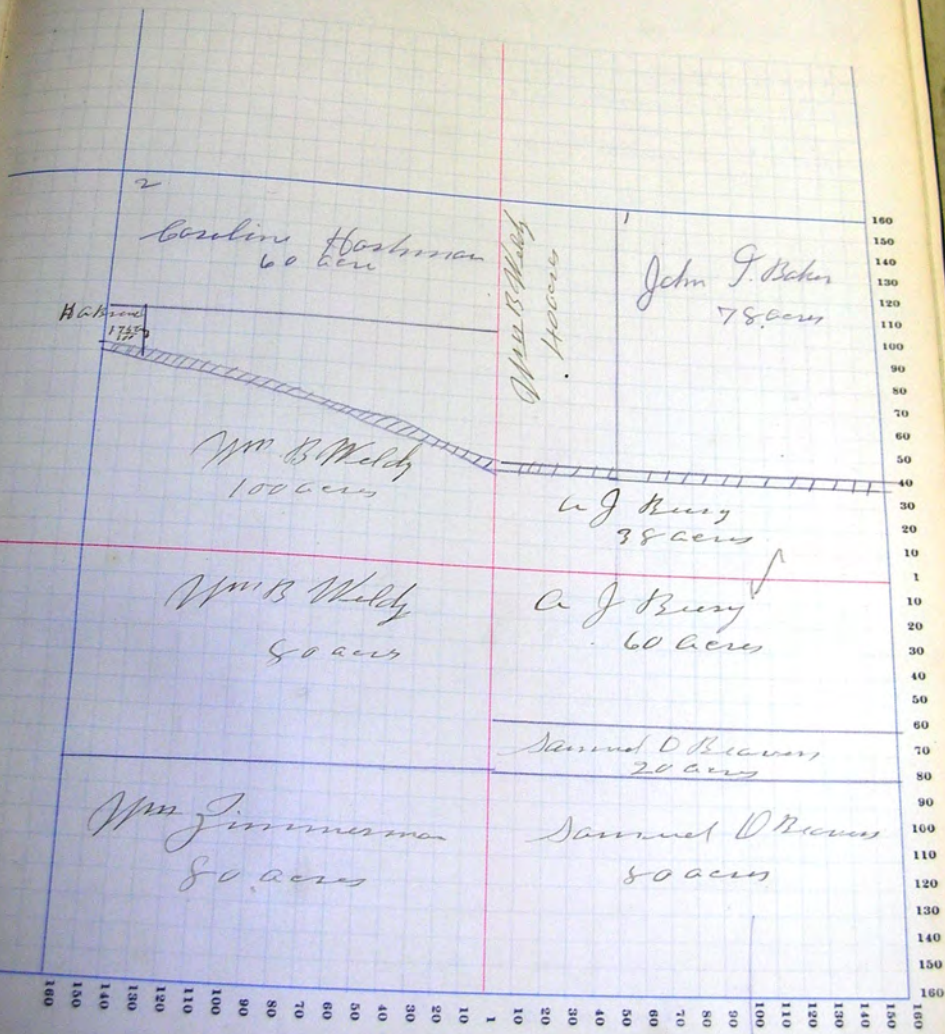 2
1
Caroline Hashman
60 acre
Wm B Weldy
40 acres
John T. Baker
78 acres
Wm B Weldy
100 acres
A J Beery
38 acres
Wm B Weldy
80 acres
A J Beery
60 acres
Samuel D Beavers
20 acres
Wm Zimmerman
80 acres
Samuel D Beavers
80 acres
160
150
140
130
120
110
100
90
80
70
60
50
40
30
20
10
1
10
20
30
40
50
60
70
80
90
100
110
120
130
140
150
160
160 150 140 130 120 110 100 90 80 70 60 50 40 30 20 10 1 10 20 30 40 50 60 70 80 90 100 110 120 130 140 150 160